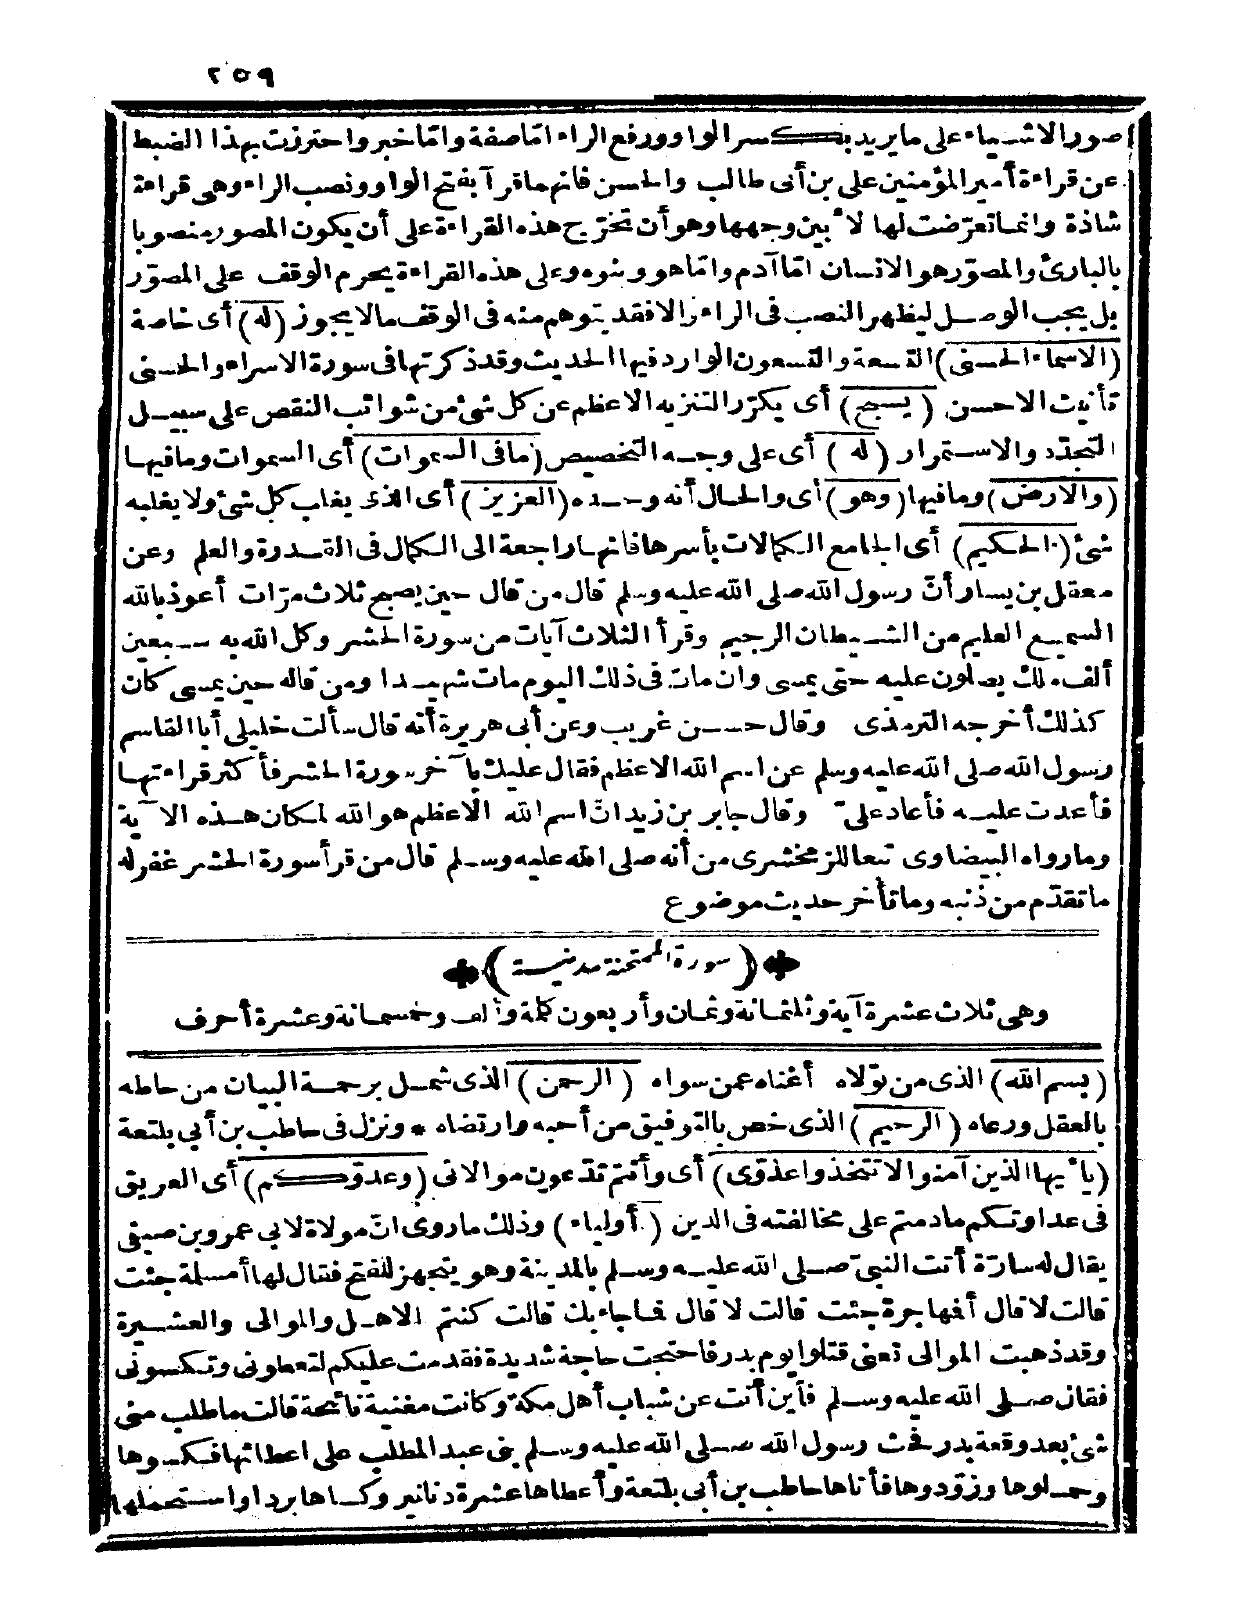 ٢٥٩
صور الاشياء على ما يريد بكسر الواو ورفع الراء امّا صفة وامّا خبر واحترزت بهذا الضبط
عن قراءة أمير المؤمنين على بن أبى طالب والحسن فانهما قرآ بفتح الواو ونصب الراء وهى قراءة
شاذة وانما تعرّضت لها لأبين وجهها وهو أن تخرّج هذه القراءة على أن يكون المصوّر منصوبا
بالبارئ والمصوّر هو الانسان امّا آدم وامّا هو وبنوه وعلى هذه القراءة يحرم الوقف على المصوّر
بل يجب الوصل ليظهر النصب فى الراء والا فقد يتوهم منه فى الوقف ما لا يجوز (له) أى خاصة
(الاسماء الحسنى) التسعة والتسعون الوارد فيها الحديث وقد ذكرتها فى سورة الاسراء والحسنى
تأنيث الاحسن (يسبح) أى يكرّر التنزيه الاعظم عن كل شئ من شوائب النقص على سبيل
التجدّد والاستمرار (له) أى على وجه التخصيص (ما فى السموات) أى السموات وما فيها
(والارض) وما فيها (وهو) أى والحال أنه وحده (العزيز) أى الذى يغلب كل شئ ولا يغلبه
شئ (الحكيم) أى الجامع الكمالات بأسرها فانها راجعة الى الكمال فى القدرة والعلم وعن
معقل بن يسار أنّ رسول الله صلى الله عليه وسلم قال من قال حين يصبح ثلاث مرّات أعوذ بالله
السميع العليم من الشيطان الرجيم وقرأ الثلاث آيات من سورة الحشر وكل الله به سبعين
ألف ملك يصلون عليه حتى يمسى وان مات فى ذلك اليوم مات شهيدا ومن قاله حين يمسى كان
كذلك أخرجه الترمذى وقال حسن غريب وعن أبى هريرة أنه قال سألت خليلى أبا القاسم
رسول الله صلى الله عليه وسلم عن اسم الله الاعظم فقال عليك بآخر سورة الحشر فأكثر قراءتها
فأعدت عليه فأعاد علىّ وقال جابر بن زيد انّ اسم الله الاعظم هو الله لمكان هذه الآية
وما رواه البيضاوى تبعا للزمخشرى من أنه صلى الله عليه وسلم قال من قرأ سورة الحشر غفر له
ما تقدّم من ذنبه وما تأخر حديث موضوع
(سورة الممتحنة مدنية)
وهى ثلاث عشرة آية وثلثمائة وثمان وأربعون كلمة وألف وخمسمائة وعشرة أحرف
(بسم الله) الذى من تولاه أغناه عمن سواه (الرحمن) الذى شمل برحمة البيان من حاطه
بالعقل ورعاه (الرحيم) الذى خص بالتوفيق من أحبه وارتضاه * ونزل فى حاطب بن أبي بلتعة
(يا أيها الذين آمنوا لا تتخذوا عدوّى) أى وأنتم تدّعون موالاتى (وعدوّكم) أى العريق
فى عداوتكم مادمتم على مخالفته فى الدين (أولياء) وذلك ما روى انّ مولاة لابي عمرو بن صيفى
يقال له سارّة أتت النبىّ صلى الله عليه وسلم بالمدينة وهو يتجهز للفتح فقال لها أمسلمة جئت
قالت لا قال أفهاجرة جئت قالت لا قال فما جاء بك قالت كنتم الاهل والموالى والعشيرة
وقد ذهبت الموالى تعنى قتلوا يوم بدر فاحتجت حاجة شديدة فقدمت عليكم لتعطونى وتكسونى
فقال صلى الله عليه وسلم فأين أنت عن شباب أهل مكة وكانت مغنية نائحة قالت ما طلب منى
شئ بعد وقعة بدر فحث رسول الله صلى الله عليه وسلم بنى عبد المطلب على اعطائها فكسوها
وحملوها وزوّدوها فأتاها حاطب بن أبى بلتعة وأعطاها عشرة دنانير وكساها بردا واستحملها